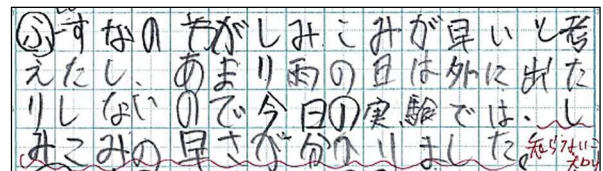 ふすなの方がしみこみが早いと考
えたし、あまり雨の日は外に出た
りしないので今日の実験では、し
みこみの早さが分かりました。
知らないこ